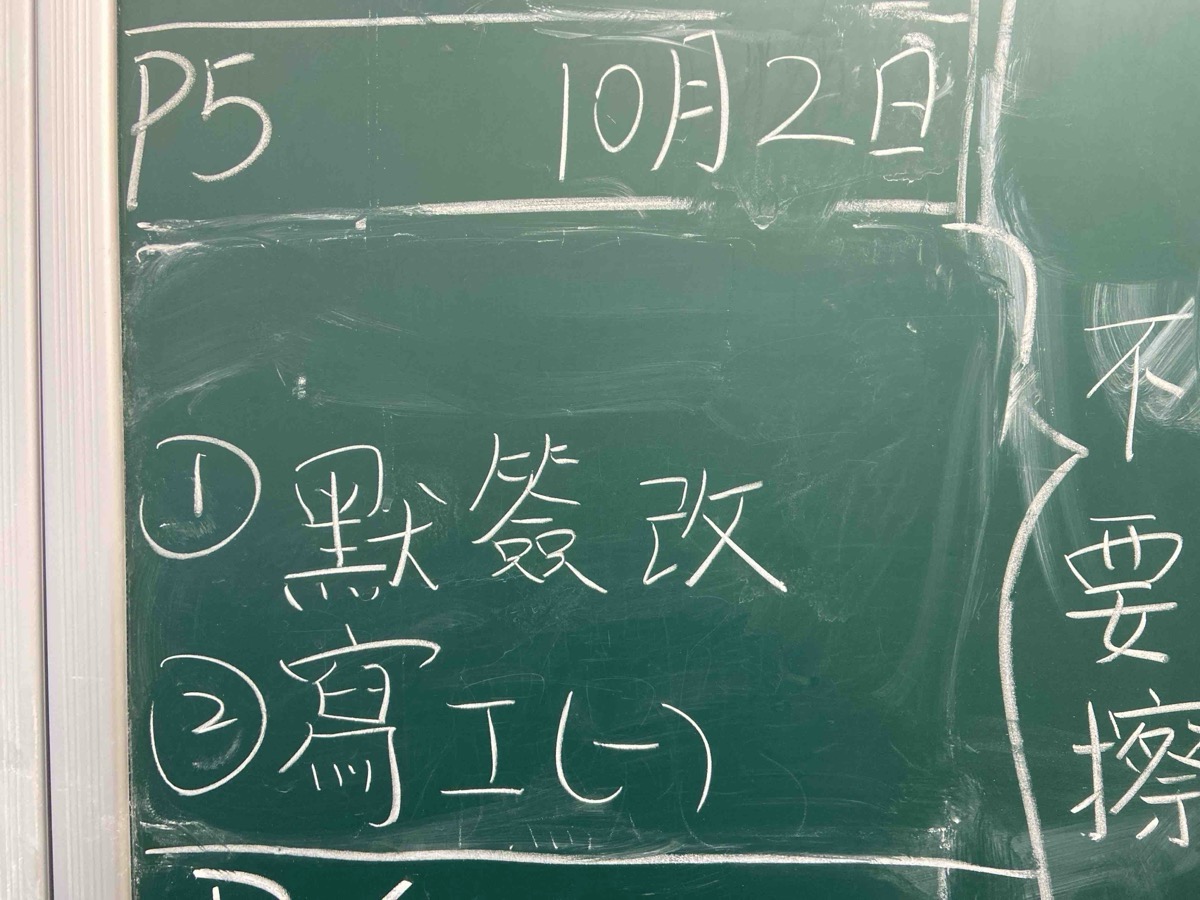 P5 10月2日
① 默簽改
② 寫工(一)
不要擦